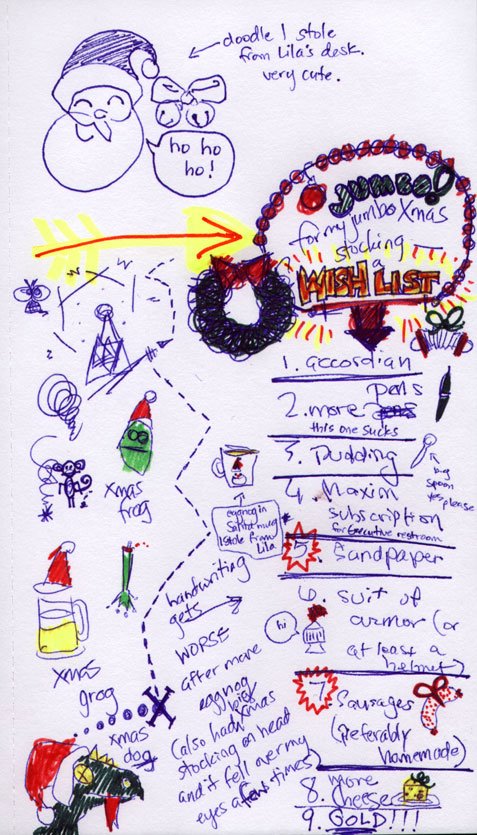 doodle I stole
from Lila's desk.
very cute.
ho ho
ho!
JUMBO!
for my jumbo Xmas
stocking
WISH LIST
1. accordian
2. more pens
this one sucks
3. Pudding
big
spoon
yes please
4. Maxim
subscription
for executive restroom
5. Sandpaper
6. suit of
armor (or
at least a
helmet)
hi
7. Sausages
(preferably
homemade)
8. more
cheeses
9. GOLD!!!
xmas
frog
eggnog in
Santa mug
I stole from
Lila
xmas
grog
xmas
dog
handwriting
gets
WORSE
after more
eggnog
(also had xmas
stocking on head
and it fell over my
eyes a few times)